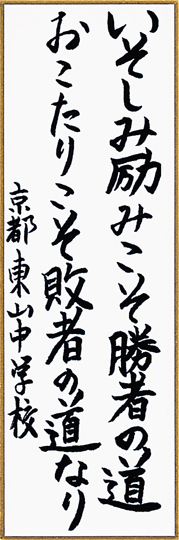 いそしみ励みこそ勝者の道
おこたりこそ敗者の道なり
京都東山中学校